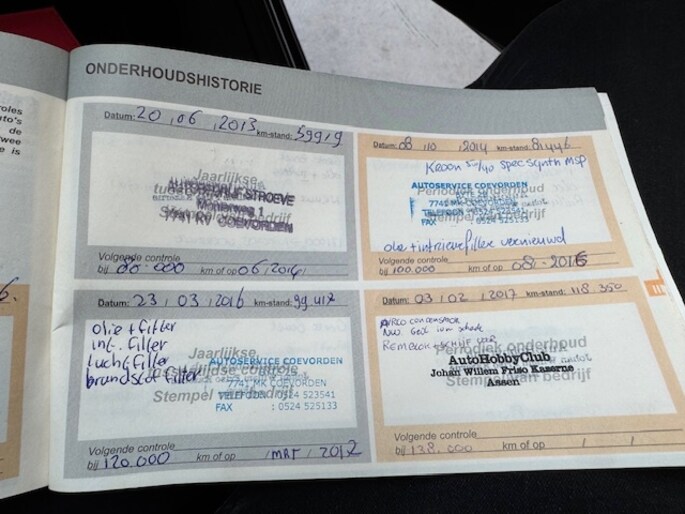 ONDERHOUDSHISTORIE
Datum: 20 , 06 , 2013 km-stand: 59919
Jaarlijkse
AUTOBEDRIJF STROEVE
Monierweg 1
7741 KV COEVORDEN
Stempel bedrijf
Volgende controle
bij 80.000 km of op 06 / 2014
Datum: 08 , 10 , 2014 km-stand: 81446
Kroon 5w/40 Specsynth MSP
Periodiek onderhoud
AUTOSERVICE COEVORDEN
7741 MK COEVORDEN
TELEFOON
FAX : 0524 525133
Stempel van bedrijf
olie + intrieurfilter vernieuwd
Volgende controle
bij 100.000 km of op 08 - 2016
Datum: 23 , 03 , 2016 km-stand: 99 417
olie + filter
int. filter
lucht filter
brandstof filter
Jaarlijkse
AUTOSERVICE COEVORDEN
7741 MK COEVORDEN
TELEFOON : 0524 523541
FAX : 0524 525133
Stempel van bedrijf
Volgende controle
bij 120.000 km of op / MRT / 2017
Datum: 03 / 02 / 2017 km-stand: 118.350
Periodiek onderhoud
AutoHobbyClub
Johan Willem Friso Kaserne
Assen
Stempel van bedrijf
Volgende controle
bij 138.000 km of op / /
roles
uto's
de
wee
e is